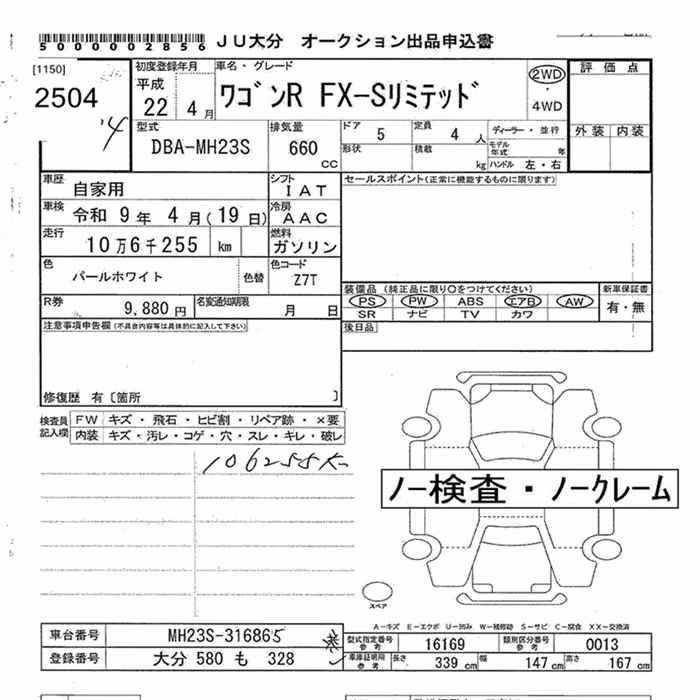 50000002856 JU大分 オークション出品申込書
[1150] 初度登録年月 車名・グレード 評価点
2504 平成 22 4月 ワゴンR FX-Sリミテッド 2WD ・ 4WD
型式 排気量 ドア 定員 ディーラー・並行 外装 内装
DBA-MH23S 660 cc 5 4人 モデル年式 年
形状 積載 kg ハンドル 左・右
車歴 自家用 シフト IAT セールスポイント(正常に機能するものに限ります)
車検 令和 9年 4月(19日) 冷房 AAC
走行 10万6千255 km 燃料 ガソリン
色 パールホワイト 色替 色コード Z7T
装備品(純正品に限り○をつけてください) 新車保証書
R券 9,880円 名変通知期限 月 日 PS PW ABS エアB AW 有・無
SR ナビ TV カワ
注意事項申告欄(不具合内容等は具体的に記入して下さい) 後日品
修復歴 有〔箇所 〕
検査員記入欄 FW キズ・飛石・ヒビ割・リペア跡・×要
内装 キズ・汚レ・コゲ・穴・スレ・キレ・破レ
106255K
ノー検査・ノークレーム
スペア
A-キズ E-エクボ U-凹み W-補修跡 S-サビ C-腐食 XX-交換済
車台番号 MH23S-316865 型式指定番号 参考 16169 類別区分番号 参考 0013
登録番号 大分 580 も 328 車庫証明用 参考 長さ 339 cm 幅 147 cm 高さ 167 cm